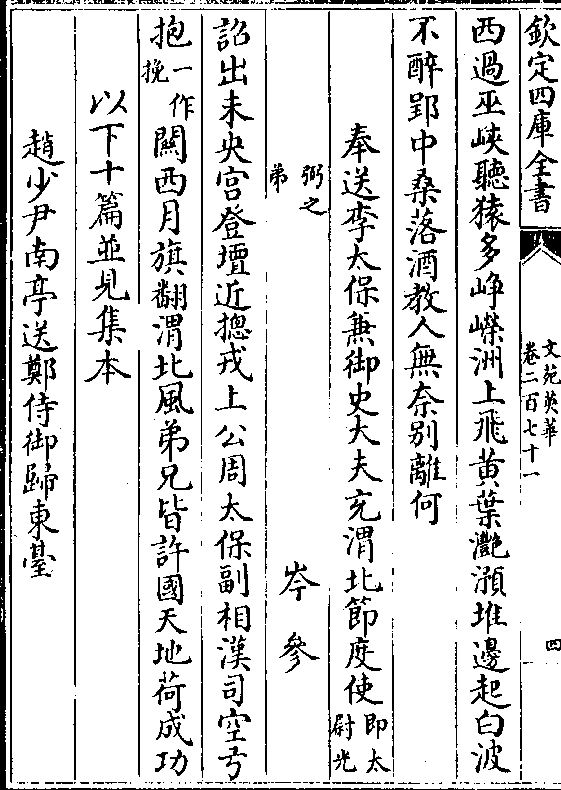 欽定四庫全書
文苑英華
卷二百七十一
四
西過巫峽聽猿多崢嶸洲上飛黃葉灧澦堆邊起白波
不醉郢中桑落酒教人無奈別離何
奉送李太保兼御史大夫充渭北節度使即太尉光
弼之弟
岑參
詔出未央宮登壇近揔戎上公周太保副相漢司空弓
抱一作挽關西月旗翻渭北風弟兄皆許國天地荷成功
以下十篇並見集本
趙少尹南亭送鄭侍御歸東臺